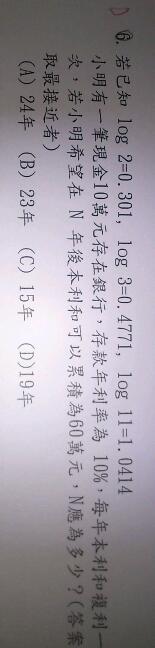 D
6. 若已知 log 2=0.301, log 3=0.4771, log 11=1.0414
小明有一筆現金10萬元存在銀行，存款年利率為 10%，每年本利和複利一
次，若小明希望在 N 年後本利和可以累積為60萬元，N應為多少？(答案
取最接近者)
(A) 24年 (B) 23年 (C) 15年 (D)19年